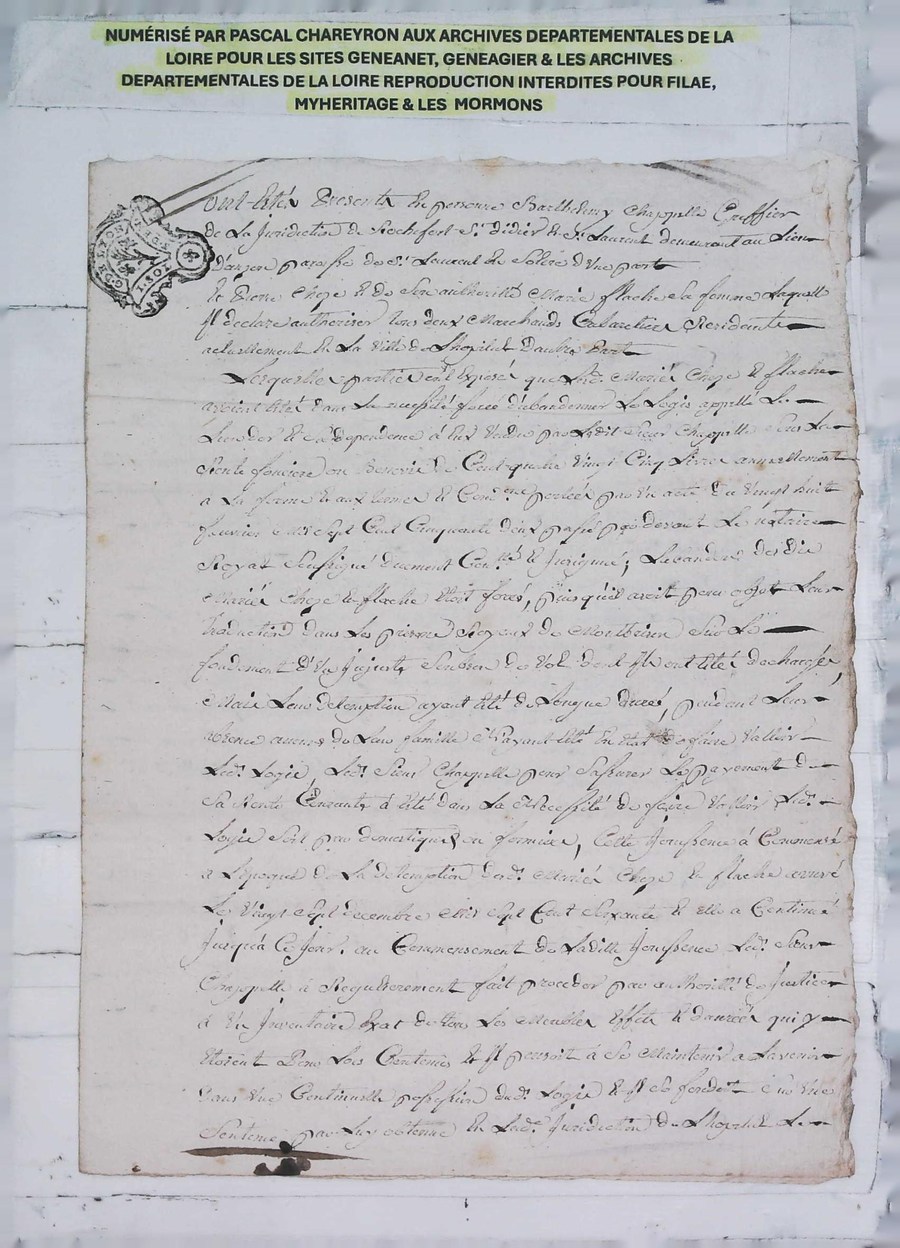 NUMÉRISÉ PAR PASCAL CHAREYRON AUX ARCHIVES DEPARTEMENTALES DE LA
LOIRE POUR LES SITES GENEANET, GENEAGIER & LES ARCHIVES
DEPARTEMENTALES DE LA LOIRE REPRODUCTION INTERDITES POUR FILAE,
MYHERITAGE & LES MORMONS
Ont Etés Presents En personne Barthelemy Chappelle Greffier
de La Juridiction de Rochefort St. didier & St. Laurent demeurant au Lieu
paroisse de St. Laurent d'Une part
Et Pierre Choze Et de Son authorité Marie flache Sa femme Laquelle
Il declare authoriser tous deux Marchands Cabaretiers Residents
actuellement En La Ville de Lhopital D'autre Part
Lesquelles parties ont Exposé que Lesd. Mariés Choze & flache
avoient Eté dans La necessité forcé d'abandonner Le Logis appellé Le
dependence à Eux vendu par Ledit Sieur Chappelle Sous La
Rente fonciere de Cent quatre Vingt Cinq Livres annuellement
à La forme & aux termes & portées par Un acte du Vingt huit
fevrier mil Sept Cent Cinquante deux passé par devant Le notaire
Royal Soussigné duement & Insinué, des dits
Mariés Choze & flache Etoit forcé, puis qu'il avoit pour objet Leur
traduction dans Les prisons Royaux de Montbrison Sur Le
fondement d'Une Injuste de Vol dont Ils ont Eté decharges,
Mais Leur detemption ayant Eté de Longue durée, pendant Leur
absence aucuns de Leur famille N'ayant Eté En Etat de faire Valloir
Led. Logis, Led. Sieur Chappelle pour S'assurer Le payement de
Sa Rente à Eté dans La Necessité de faire Valloir Led.
Logis Soit par domestiques ou fermiers, Cette Jouissence à Commensé
à L'epoque de La detemption desd. Mariés Choze & flache arrivé
Le Vingt Sept decembre Mil Sept Cent Soixante & Elle a Continué
Jusqu'à Ce Jour. au Commensement de Ladite Jouissence Led. Sieur
Chappelle à Regulierement fait proceder par authorité de Justice
à Un Inventaire Exat de tous Les Meubles Effets & danrées qui y
Etoient Pour Lors Contenus & Il pensoit à Se Maintenir a Lavenir
dans Une Continuelle possession dud. Logis & Il Se fondoit Sur Une
Sentence par Luy obtenue En Lad. Juridiction de Lhopital Le